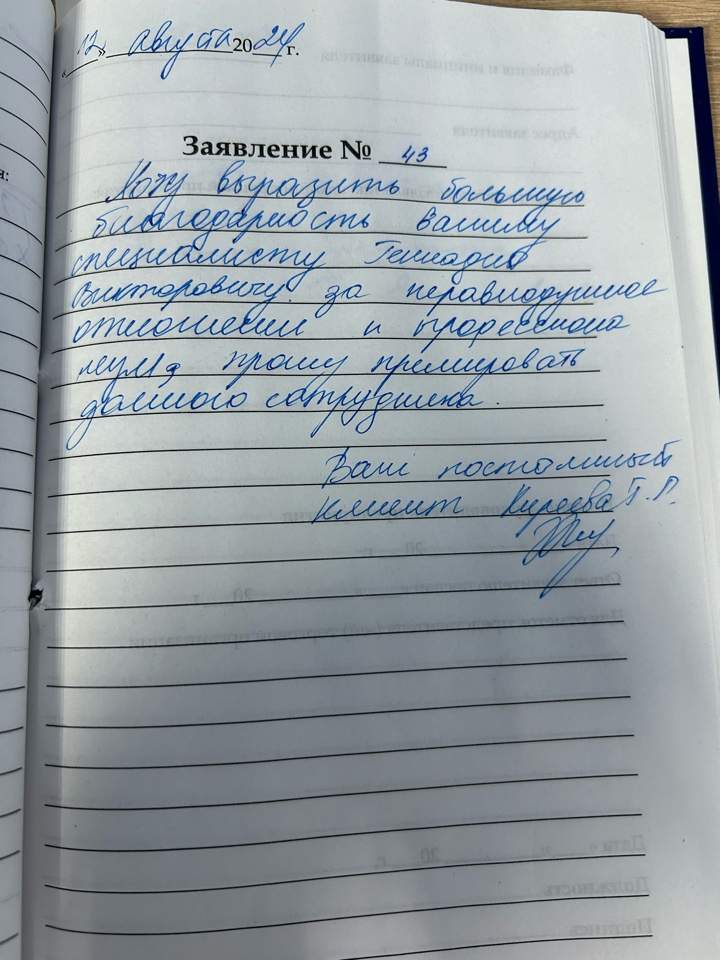 «12» августа 2024 г.
Заявление № 43
Хочу выразить большую
благодарность вашему
специалисту Геннадию
Викторовичу за неравнодушное
отношении и професиона
лизм, прошу премировать
данного сотрудника.
Ваш постоянный
клиент Киреева Г.П.